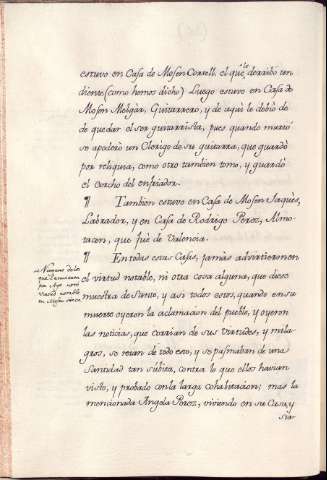 estuvo en Casa de Mosen Cortell, el que le derribo un
diente, (como hemos dicho) Luego estuvo en Casa de
Mosen Melgàr, Guitarrero, y de aqui le debio de
de quedar el ser guitarrista, pues quando murió
se apoderò un Clerigo de su guitarra, que guardò
por reliquia, como otro tambien tomò, y guardò
el corcho del enfriador.
¶ Tambien estuvo en Casa de Mosen Jaques,
Labrador, y en Casa de Rodrigo Perez, Almo-
tacen, que fuè de Valencia.
¶ En todas estas Casas, jamàs advirtieron en
el virtud notable, ni otra cosa alguna, que diese
muestra de Santo, y asi todos estos, quando en su
muerte oyeron la aclamacion del pueblo, y oyeron
las noticias, que corrian de sus virtudes, y mila-
gros, se reian de todo esto, y se pasmaban de una
Santidad tan subita, contra lo que ellos havian
visto, y probado con la larga cohabitacion; mas la
mencionada Angela Perez, viviendo en su Casa, y
Ninguno de los
que
por Amo notò
virtud notable
en Mosen